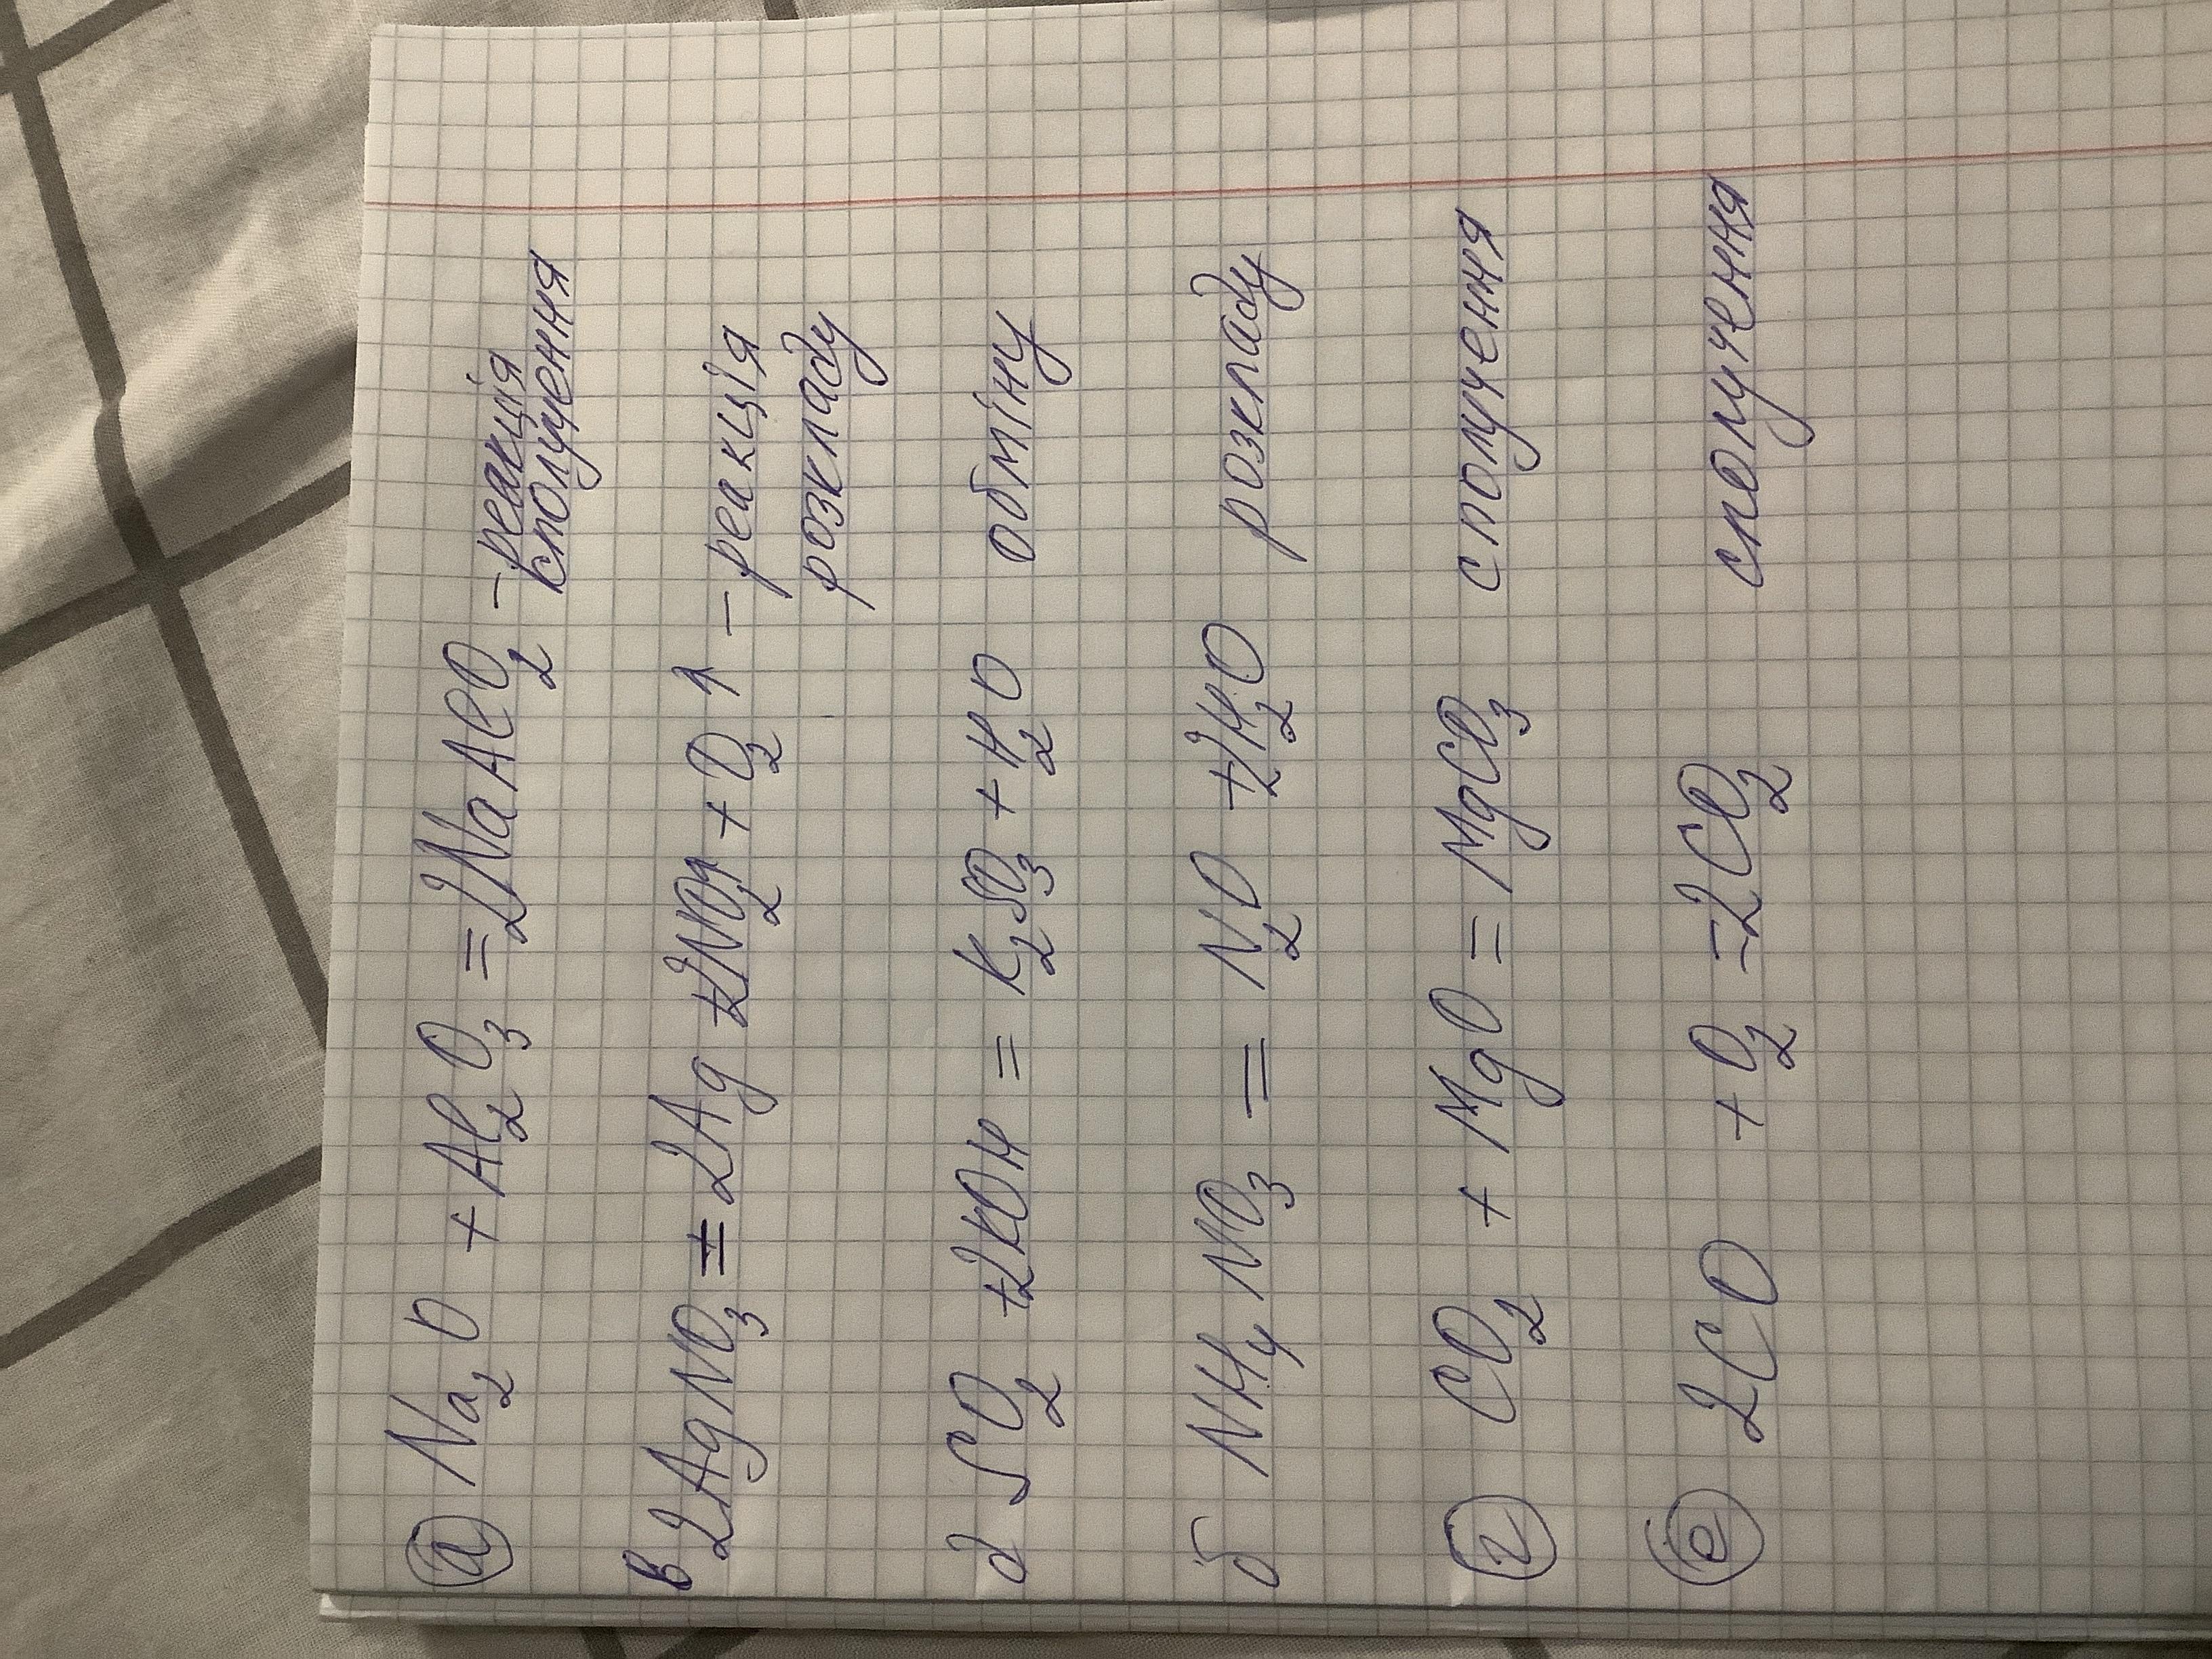 а Na₂O + Al₂O₃ = 2NaAlO₂ – реакція сполучення
в 2AgNO₃ = 2Ag + 2NO₂↑ + O₂↑ – реакція
розкладу
д SO₂ + 2KOH = K₂SO₃ + H₂O обміну
б NH₄NO₃ = N₂O + 2H₂O розкладу
г CO₂ + MgO = MgCO₃ сполучення
е 2CO + O₂ = 2CO₂ сполучення